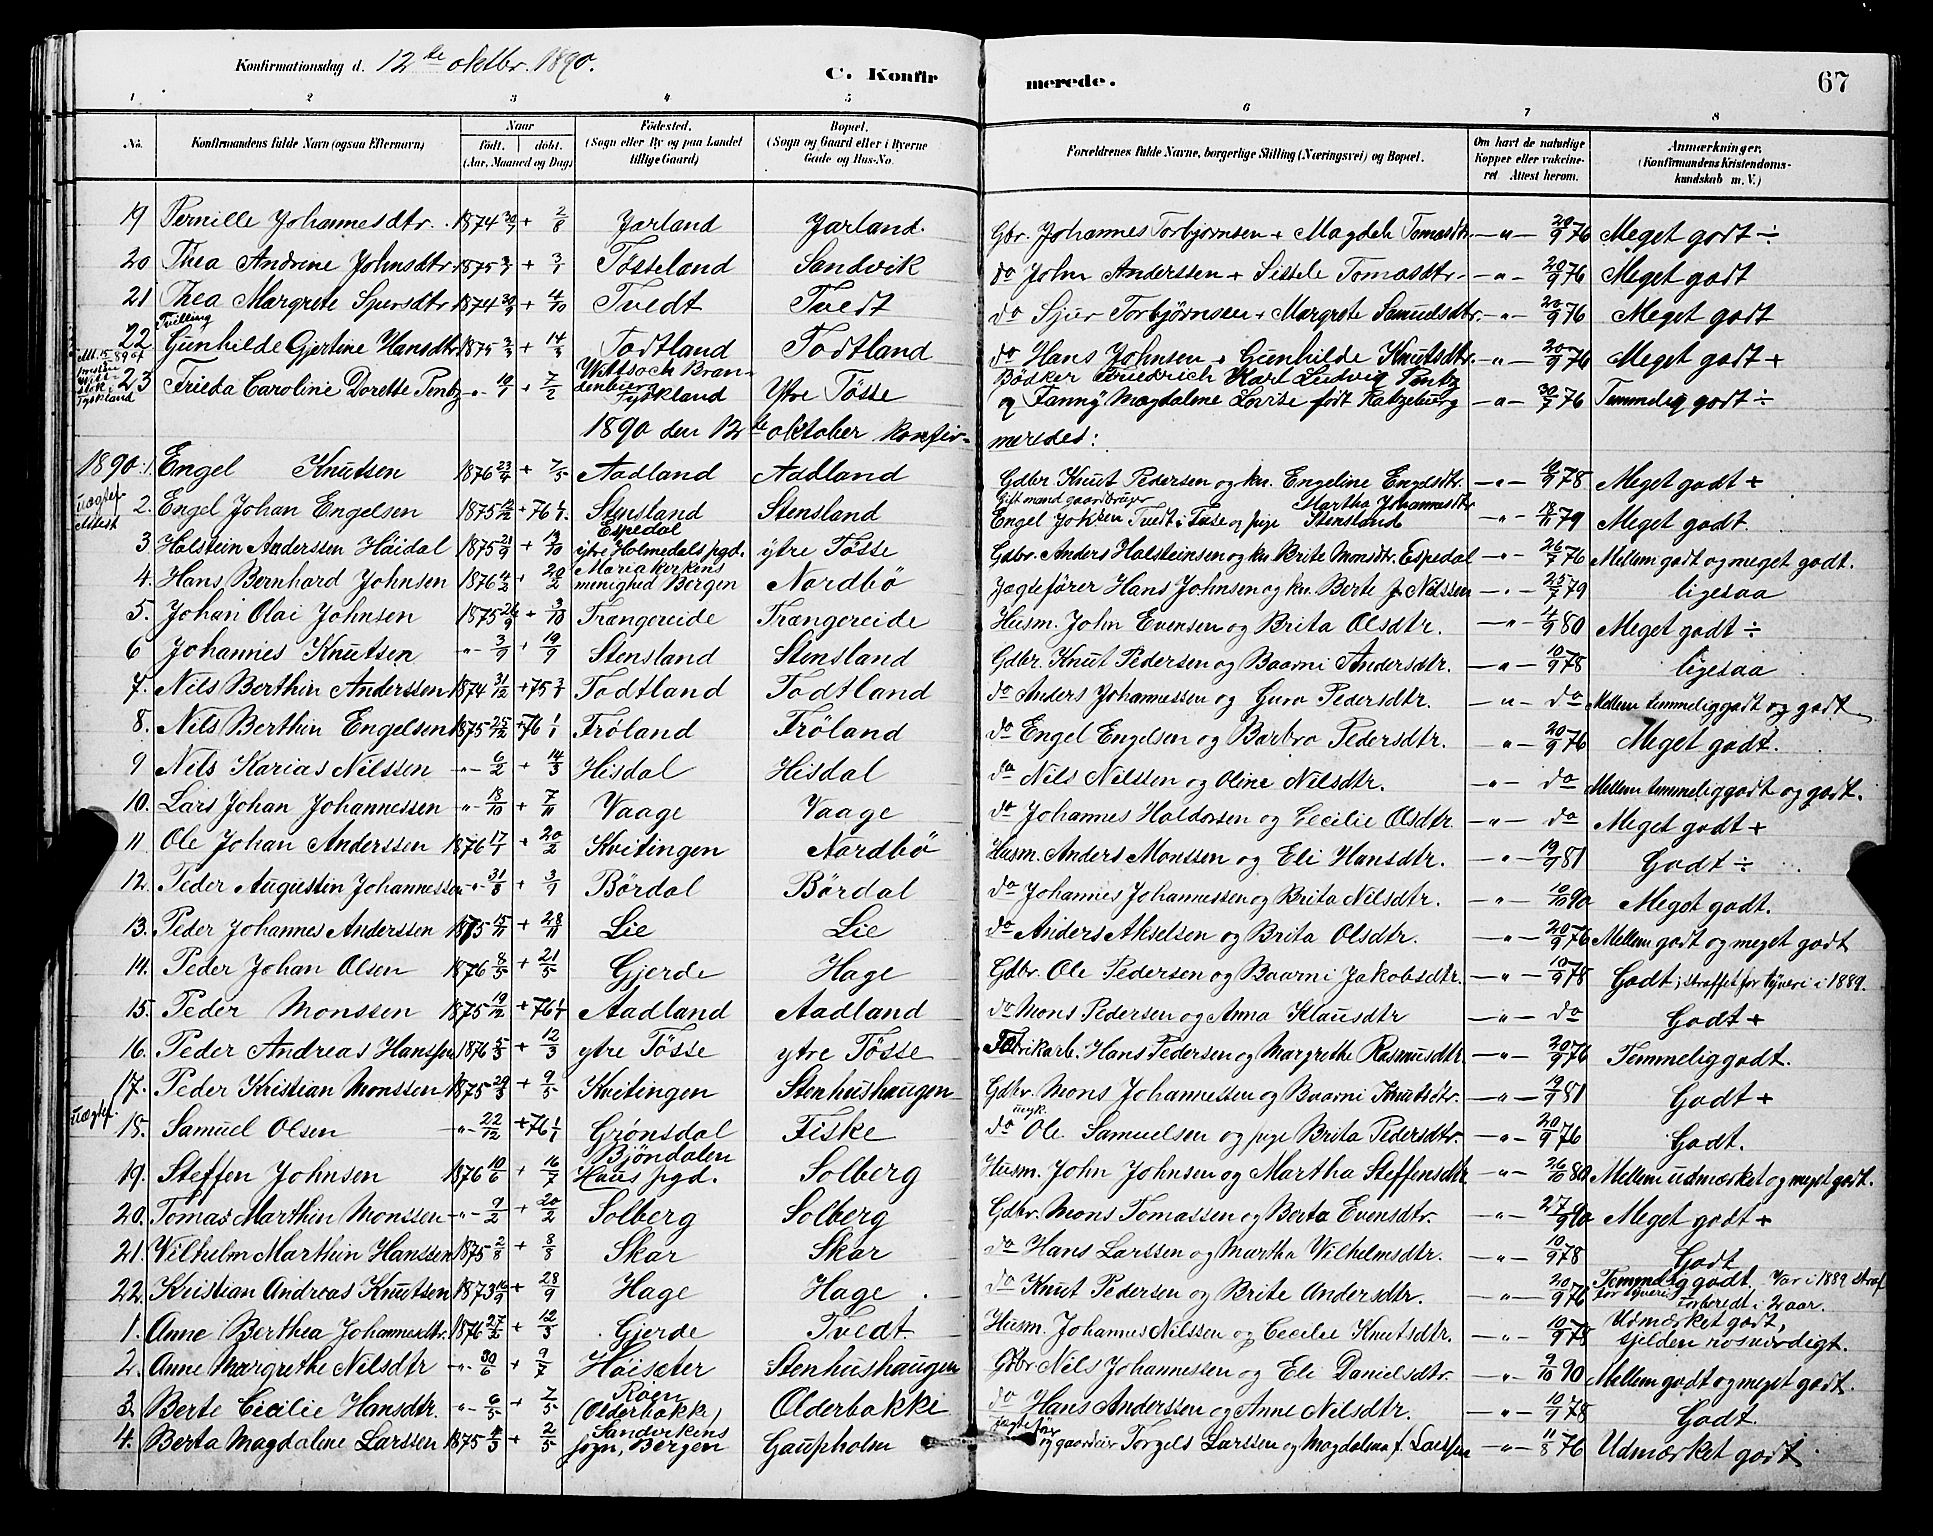 Konfirmationsdag d. 12te oktbr. 1890. C. Konfir merede. 67
1 2 3 4 5 6 7 8
No. Konfirmandens fulde Navn (ogsaa Efternavn) Naar født. døbt. (Aar, Maaned og Dag) Fødested. (Sogn eller By og paa Landet tillige Gaard) Bopæl. (Sogn og Gaard eller i Byerne Gade og Hus-No. Forældrenes fulde Navne, borgerlige Stilling (Næringsvei) og Bopæl. Om havt de naturlige Kopper eller vakcineret. Attest herom. Anmærkninger. (Konfirmandens Kristendomskundskab m. V.)
19 Pernille Johannesdtr. 1874 30/7 + 2/8 Jarland Jarland. Gbr. Johannes Torbjørnsen + Magdeli Tomasdtr. -"- 20/9 76 Meget godt ÷
20 Thea Andrine Johnsdtr 1875 3/1 + 3/1 Tøsseland Sandvik do John Anderssen + Sissele Tomasdtr. -"- 20/9 76 Meget godt
21 Thea Margrete Sjursdtr 1874 30/9 + 4/10 Tvedt Tvedt do Sjur Torbjørnsen + Margrete Samuelsdtr. -"- 20/9 76 Meget godt
Tvilling
22 Gunhilde Gjertine Hansdtr 1875 2/3 + 14/3 Todtland Todtland do Hans Johnsen + Gunhilde Knutsdtr. -"- 20/9 76 Meget godt +
23 Frieda Caroline Dorette Pentz -"- 19/1 + 7/2 Wittsoch Brandenburg Tyskland Ytre Tösse Bödker Friedrich Karl Ludvig Pentz og Fanny Magdalene Lovise født Katzeburg -"- 30/7 76 Temmelig godt ÷
1890 den 12te oktober konfirmeredes:
1890: 1. Engel Knutsen 1876 23/4 + 7/5 Aadland Aadland Gdbr. Knut Pedersen og kn. Engeline Engelsdtr. -"- 10/9 78 Meget godt +
uægtef. Attest 2. Engel Johan Engelsen 1875 12/12 + 76 6/1. Stensland Stensland Gift mand gaardbruger Engel Johsen Tvedt i Fuse og pige Martha Johannesdtr Stensland -"- 18/11 79 Meget godt.
3 Holstein Anderssen Häidal 1875 21/9 + 19/10 Espedal ytre Holmedals pgd. ytre Tösse Gdbr. Anders Holsteinsen og kn Brite Monsdtr. Espedal -"- 26/7 76 Mellem godt og meget godt.
4. Hans Bernhard Johnsen 1876 4/2 + 20/2 Mariakirkens menighed Bergen Nordbö Jagtefører Hans Johnsen og kn. Berte f. Nilssen -"- 25/7 79 ligesaa
5. Johan Olai Johnsen 1875 26/9 + 3/10 Trængereide Trængereide Husm. John Evensen og Brita Olsdtr. -"- 4/9 80 Meget godt ÷
6 Johannes Knutsen -"- 3/9 + 19/9 Stensland Stensland Gdbr. Knut Pedersen og Baarni Andersdtr. -"- 10/9 78 ligesaa
7. Nils Berthin Anderssen 1874 31/12 + 75 3/1 Todtland Todtland do Anders Johannessen og Guro Pedersdtr. -"- do Mellem temmeliggodt og godt
8. Nils Berthin Engelsen 1875 25/12 + 76 1/1 Fröland Fröland do Engel Engelsen og Barbro Pedersdtr. " - 20/9 76 Meget godt.
9 Nils Karias Nilssen -"- 6/2 + 14/3 Hisdal Hisdal do Nils Nilssen og Oline Nilsdtr. " - do Mellem temmeliggodt og godt.
10. Lars Johan Johannessen -"- 18/10 + 7/11 Vaage Vaage do Johannes Haldorsen og Cecilie Olsdtr. -"- do Meget godt +
11 Ole Johan Anderssen 1876 17/1 + 20/2 Kvitingen Nordbö Husm. Anders Monssen og Eli Hansdtr. -"- 19/9 81 Godt ÷
12. Peder Augustin Johannessen -"- 31/8 + 3/9 Bördal Bördal do Johannes Johannessen og Brita Nilsdtr. -"- 10/10 90 Meget godt.
13. Peder Johannes Anderssen 1875 15/11 + 28/11 Lie Lie do Anders Akselsen og Brita Olsdtr. -"- 20/9 76 Mellem godt og meget godt
14. Peder Johan Olsen 1876 8/5 + 21/5 Gjerde Hage Gdbr. Ole Pedersen og Baarni Jakobsdtr. -"- 10/9 78 Godt, straffet for tyveri i 1889.
15. Peder Monssen 1875 19/12 + 76 1/1 Aadland Aadland do Mons Pedersen og Anna Klausdtr -"- do Godt +
16. Peder Andreas Hanssen 1876 5/3 + 12/3 ytre Tösse ytre Tösse Fabrikarb. Hans Pedersen og Margrethe Rasmusdtr. -"- 20/9 76 Temmeliggodt.
17. Peder Kristian Monssen 1875 29/3 + 9/5 Kvitingen Stenhushaugen Gdbr. Mons Johannessen og Baarni Knutsdtr. -"- 19/9 81 Godt +
uægtef. 18. Samuel Olsen -"- 22/12 + 76 1/1 Grönsdal Fiske do ugk. Ole Samuelsen og pige Brita Pedersdtr. -"- 20/9 76 Godt.
19. Steffen Johnsen 1876 10/6 + 16/7 Bjöndalen Haus pgd. Solberg Husm. John Johnsen og Martha Steffensdtr -"- 26/10 80 Mellem udmærket og meget godt.
20. Tomas Marthin Monssen -"- 9/2 + 20/2 Solberg Solberg Gdbr. Mons Tomassen og Berta Evensdtr. -"- 27/9 90 Meget godt +
21. Vilhelm Marthin Hanssen 1875 2/8 + 8/8 Skar Skar do Hans Larssen og Martha Vilhelmsdtr. -"- 10/9 78 Godt
22. Kristian Andreas Knutsen 1873 16/9 + 28/9 Hage Hage. do Knut Pedersen og Brite Andersdtr. -"- 20/9 76 Temmelig godt. Var i 1889 straf for tyveri Forberedt i 2 aar.
1. Anne Berthea Johannesdtr. 1876 27/2 + 12/3 Gjerde Tvedt Husm. Johannes Nilssen og Cecilie Knutsdtr. -"- 10/9 78 Udmærket godt, sjelden rosværdigt.
2. Anne Margrethe Nilsdtr -"- 30/6 + 9/7 Höisæter Stenhushaugen Gdbr Nils Johannessen og Eli Danielsdtr. -"- 9/10 90 Mellem godt og meget godt.
3. Berte Cecilie Hansdtr. -"- 6/5 + 7/5 Röen (Olderbakk) Olderbakke do Hans Anderssen og Anne Nilsdtr. -"- 10/9 78 Godt
4. Berta Magdalene Larssen 1875 4/3 + 2/5 Sandvikens sogn, Bergen Gaupholm Jagtefør og gaardeier Torgels Larssen og Magdalena f. Larssen -"- 11/8 76 Udmærket godt.